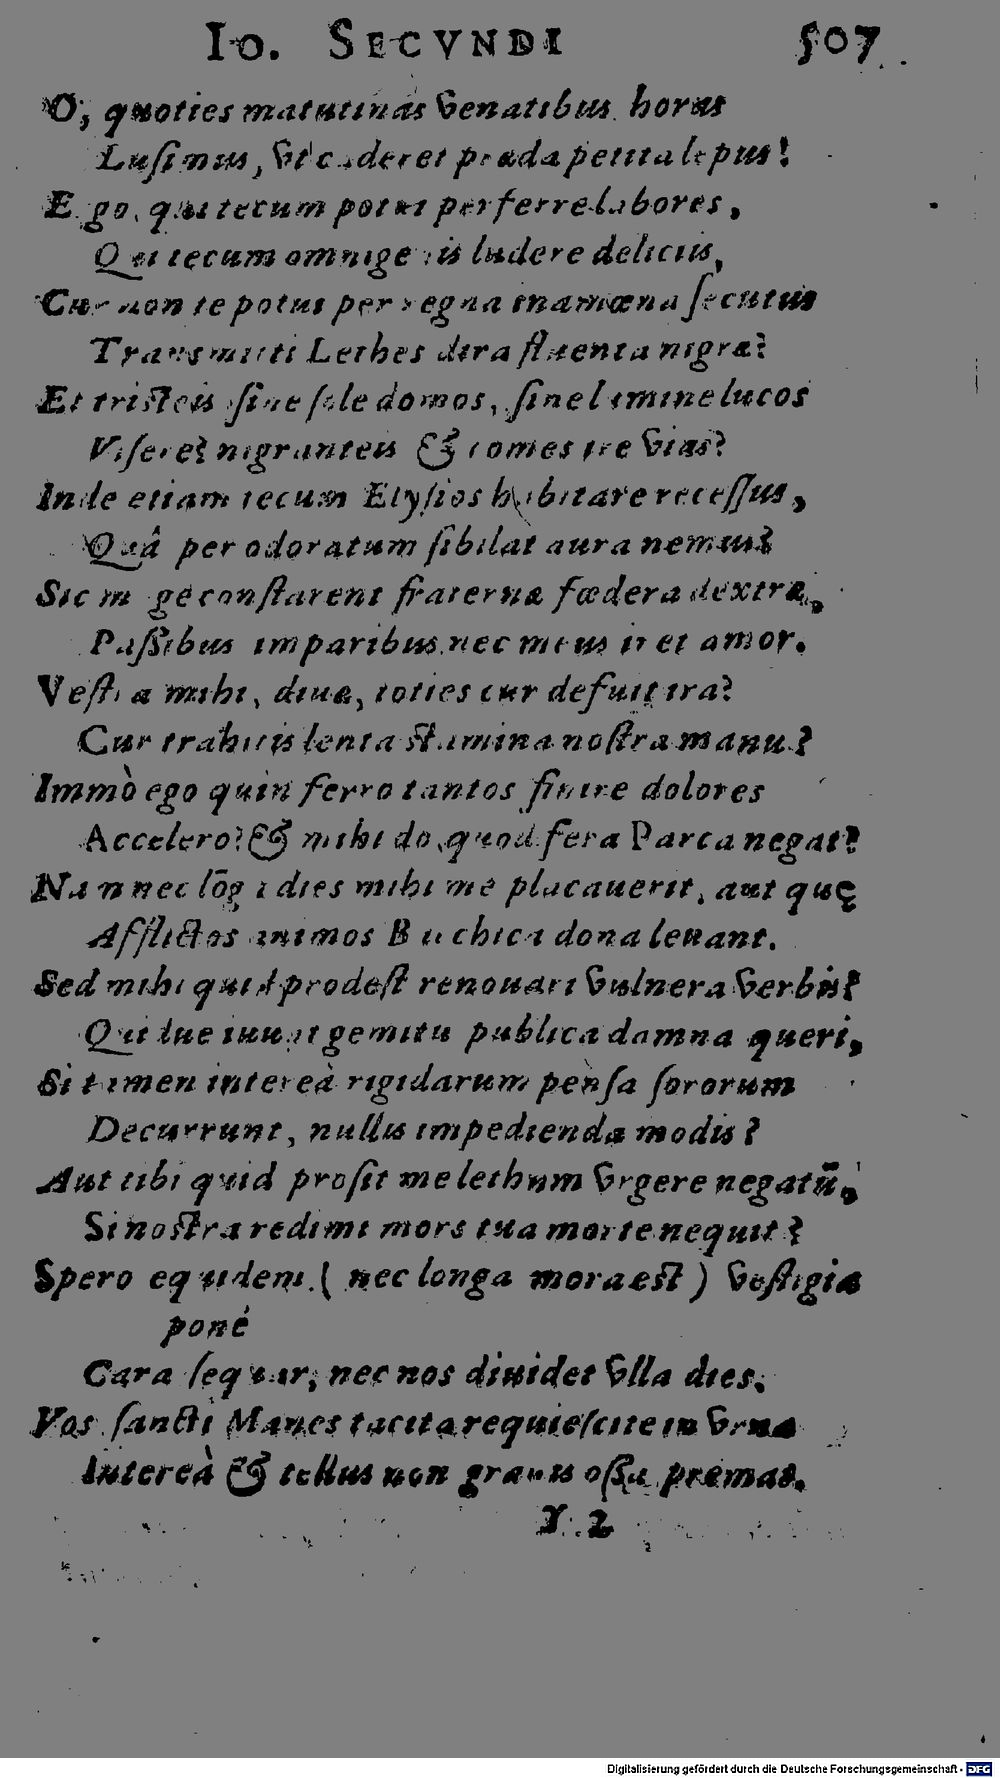 Io. SECVNDI 507
O, quoties matutinas venatibus horas
Lusimus, vt caderet præda petita lepus!
Ego, qui tecum potui perferre labores,
Qui tecum omnigenis ludere deliciis,
Cur non te potui per regna inamœna secutus
Transmitti Lethes dira fluenta nigræ?
Et tristeis sine sole domos, sine lumine lucos
Visere? nigranteis & comes ire vias?
Inde etiam tecum Elysios habitare recessus,
Quâ per odoratum sibilat aura nemus?
Sic constarent fraternæ fœdera dextræ,
Passibus imparibus nec meus iret amor.
Vestra mihi, diuæ, toties cur defuit ira?
Cur trahitis lenta stamina nostra manu?
Immò ego quin ferro tantos finire dolores
Accelero? & mihi do, quod fera Parca negat?
Nam nec lōga dies mihi me placauerit, aut quę
Afflictos animos Bacchica dona leuant.
Sed mihi quid prodest renouari vulnera verbis?
Qui lue iuuat gemitu publica damna queri,
Si tamen intereà rigidarum pensa sororum
Decurrunt, nullis impedienda modis?
Aut tibi quid prosit me lethum vrgere negatū,
Si nostra redimi mors tua morte nequit?
Spero equidem (nec longa mora est) vestigia
ponè
Cara sequar, nec nos diuidet vlla dies.
Vos sancti Manes tacita requiescite in vrna
Intereà & tellus non grauis ossa premat.
Y 2
Digitalisierung gefördert durch die Deutsche Forschungsgemeinschaft - DFG